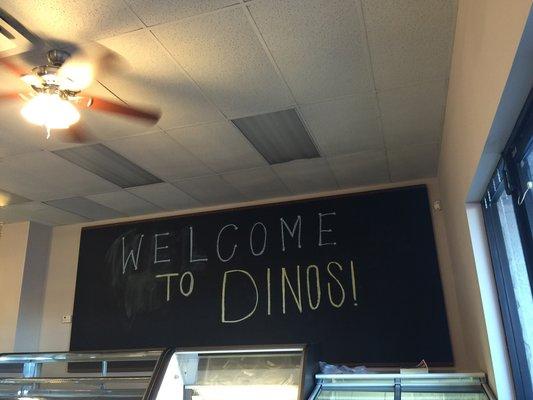 WELCOME
TO DINOS!